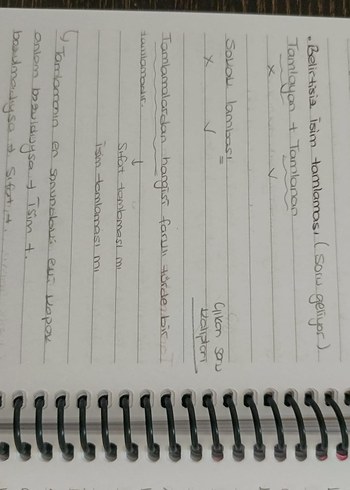 • Belirtisiz isim tamlaması. (Soru geliyor)
Tamlayan + Tamlanan
x ✓
Sokak lambası
x ✓
Çıkan soru
kalıpları
Tamlamalardan hangisi farklı türde bir
tamlamadır.
↓
Sıfat tamlaması mı
isim tamlaması mı
↳ Tamlamanın en sonundaki eki kapat
anlam bozulduysa → İsim t.
bozulmadıysa → Sıfat t.